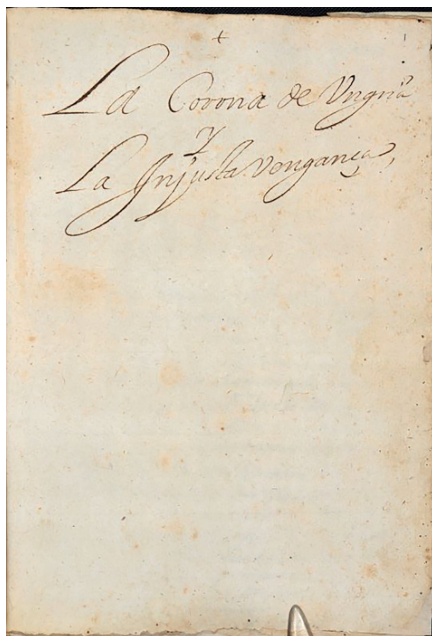 +
La Corona de Vngria
Y
La Injusta Vengança,